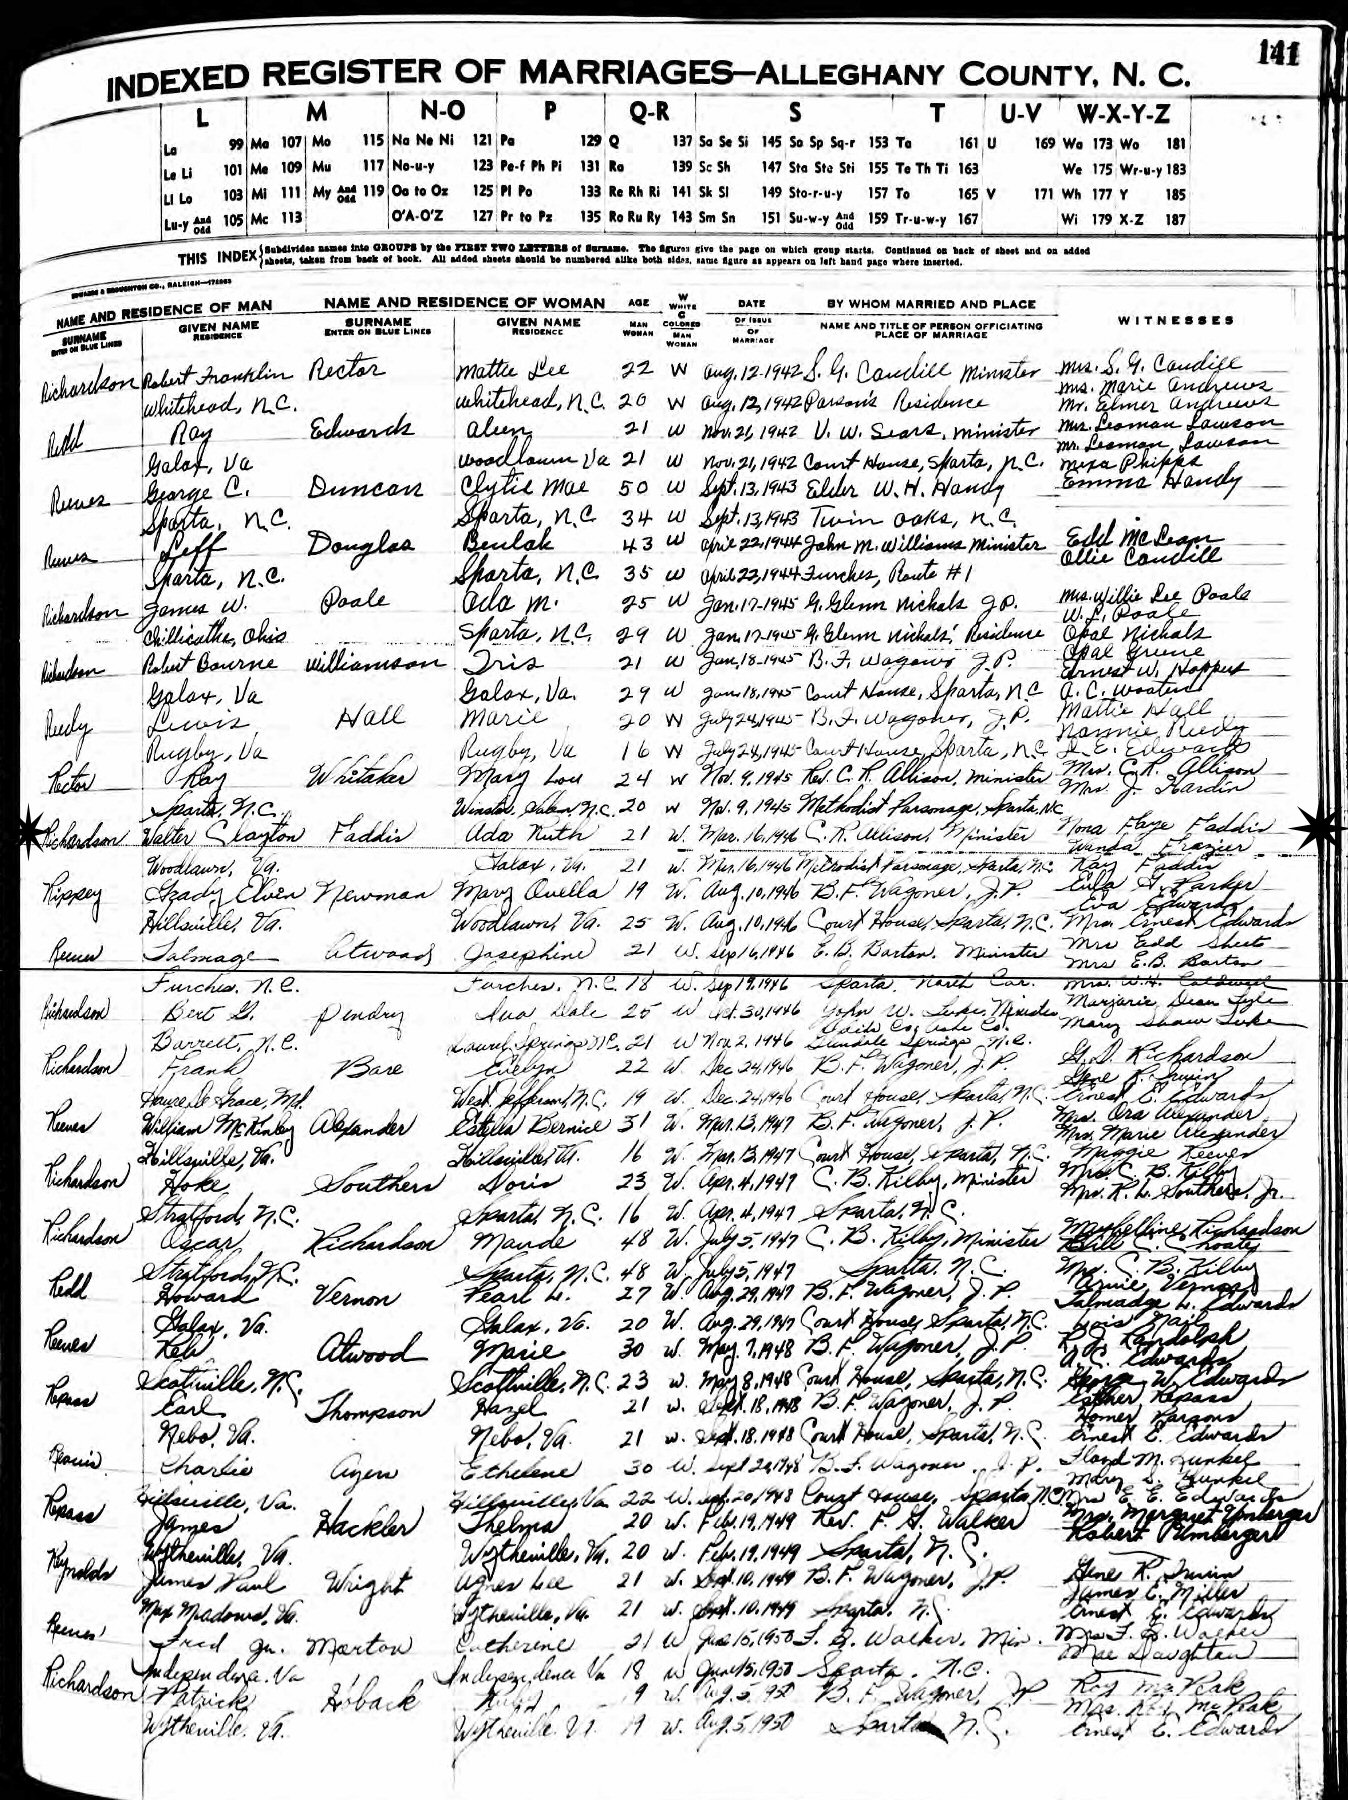 141
INDEXED REGISTER OF MARRIAGES—ALLEGHANY COUNTY, N. C.
L M N-O P Q-R S T U-V W-X-Y-Z
La 99 Ma 107 Mo 115 Na Ne Ni 121 Pa 129 Q 137 Sa Se Si 145 So Sp Sq-r 153 Ta 161 U 169 Wa 173 Wo 181
Le Li 101 Me 109 Mu 117 No-u-y 123 Pe-f Ph Pi 131 Ra 139 Sc Sh 147 Sta Ste Sti 155 Te Th Ti 163 We 175 Wr-u-y 183
Ll Lo 103 Mi 111 My And Odd 119 Oa to Oz 125 Pl Po 133 Re Rh Ri 141 Sk Sl 149 Sto-r-u-y 157 To 165 V 171 Wh 177 Y 185
Lu-y And Odd 105 Mc 113 O'A-O'Z 127 Pr to Pz 135 Ro Ru Ry 143 Sm Sn 151 Su-w-y And Odd 159 Tr-u-w-y 167 Wi 179 X-Z 187
THIS INDEX { Subdivides names into GROUPS by the FIRST TWO LETTERS of Surname. The figures give the page on which group starts. Continued on back of sheet and on added
sheets, taken from back of book. All added sheets should be numbered alike both sides, same figure as appears on left hand page where inserted.
EDWARDS & BROUGHTON CO., RALEIGH
NAME AND RESIDENCE OF MAN NAME AND RESIDENCE OF WOMAN AGE W WHITE C COLORED DATE BY WHOM MARRIED AND PLACE WITNESSES
SURNAME ENTER ON BLUE LINES GIVEN NAME RESIDENCE SURNAME ENTER ON BLUE LINES GIVEN NAME RESIDENCE MAN WOMAN MAN WOMAN OF ISSUE OF MARRIAGE NAME AND TITLE OF PERSON OFFICIATING PLACE OF MARRIAGE
Richardson Robert Franklin Rector Mattie Lee 22 W Aug. 12-1942 S. G. Caudill Minister Mrs. S. G. Caudill
Mrs. Marie Andrews
Whitehead, N.C. Whitehead, N.C. 20 W Aug. 12, 1942 Parson's Residence Mr. Elmer Andrews
Redd Ray Edwards Aleen 21 W Nov. 21, 1942 V. W. Sears, Minister Mrs. Leaman Lawson
Mr. Leaman Lawson
Galax, Va Woodlawn Va 21 W Nov. 21, 1942 Court House, Sparta, N.C. Mexa Phipps
Reeves George C. Duncan Clytie Mae 50 W Sept. 13, 1943 Elder W. H. Handy Emma Handy
Sparta, N.C. Sparta, N.C. 34 W Sept. 13, 1943 Twin Oaks, N.C.
Reeves Leff Douglas Beulah 43 W April 22, 1944 John M. Williams Minister Edd McLean
Ollie Caudill
Sparta, N.C. Sparta, N.C. 35 W April 22, 1944 Furches, Route #1
Richardson James W. Poole Ada M. 25 W Jan. 17-1945 G. Glenn Nichols J.P. Mrs. Willie Lee Poole
W. L. Poole
Chillicothe, Ohio Sparta, N.C. 29 W Jan. 17-1945 G. Glenn Nichols' Residence Opal Nichols
Opal Greene
Richardson Robert Bourne Williamson Iris 21 W Jan. 18-1945 B. F. Wagoner J.P. Ernest W. Hoppers
Galax, Va Galax, Va. 29 W Jan. 18, 1945 Court House, Sparta, N.C. A. C. Wooten
Reedy Lewis Hall Marie 20 W July 24, 1945 B. F. Wagoner, J.P. Mattie Hall
Nannie Reedy
Rugby, Va Rugby, Va 16 W July 24, 1945 Court House, Sparta, N.C. D. E. Edwards
Rector Ray Whitaker Mary Lou 24 W Nov. 9, 1945 Rev. C. R. Allison, Minister Mrs. C. R. Allison
Mrs. J. Hardin
Sparta, N.C. Winston Salem, N.C. 20 W Nov. 9, 1945 Methodist Parsonage, Sparta, NC
Richardson Walter Clayton Faddis Ada Ruth 21 W. Mar. 16, 1946 C. R. Allison, Minister Nora Faye Faddis
Wanda Frazier
Woodlawn, Va. Galax, Va. 21 W. Mar. 16, 1946 Methodist Parsonage, Sparta, N.C. Ray Faddis
Rippey Grady Elven Newman Mary Ouella 19 W. Aug. 10, 1946 B. F. Wagoner, J.P. Eula H. Parker
Eva Edwards
Hillsville, Va. Woodlawn, Va. 25 W. Aug. 10, 1946 Court House, Sparta, N.C. Mrs. Ernest Edwards
Reeves Talmage Atwood Josephine 21 W. Sep 16, 1946 E. B. Barton, Minister Mrs Edd Sheets
Mrs E.B. Barton
Furches, N.C. Furches, N.C. 18 W. Sep 19, 1946 Sparta, North Car. Mrs. W.H. Caldwell
Richardson Bert G. Pendry Iva Dale 25 W Oct. 30, 1946 John W. Luke, Minister Marjorie Dean Lyle
Mary Shaw Luke
Barrett, N.C. Laurel Springs N.C. 21 W Nov. 2, 1946 Glendale Springs, N.C.
Richardson Frank Bare Evelyn 22 W. Dec. 24, 1946 B. F. Wagoner, J.P. G. D. Richardson
Gene R. Irwin
Havre De Grace, Md. West Jefferson, N.C. 19 W. Dec. 24, 1946 Court House, Sparta, N.C. Ernest E. Edwards
Reeves William McKinley Alexander Estella Bernice 31 W. Mar. 13, 1947 B. F. Wagoner, J.P. Mrs. Ora Alexander
Mrs. Marie Alexander
Hillsville, Va. Hillsville, Va. 16 W. Mar. 13, 1947 Court House, Sparta, N.C. Maggie Reeves
Richardson Hoke Southern Doris 23 W. Apr. 4, 1947 C. B. Kilby, Minister Mrs. C. B. Kilby
Mrs. R. L. Southern, Jr.
Stratford, N.C. Sparta, N.C. 16 W. Apr. 4, 1947 Sparta, N.C.
Richardson Oscar Richardson Maude 48 W. July 5, 1947 C. B. Kilby, Minister Maybelline Richardson
Bill C. Choate
Stratford, N.C. Sparta, N.C. 48 W. July 5, 1947 Sparta, N.C. Mrs. C. B. Kilby
Redd Howard Vernon Pearl L. 27 W. Aug. 29, 1947 B. F. Wagoner, J.P. Arnie Vernon
Talmadge L. Edwards
Galax, Va. Galax, Va. 20 W. Aug. 29, 1947 Court House, Sparta, N.C.
Reeves Reb Atwood Marie 30 W. May. 7, 1948 B. F. Wagoner, J.P. R. J. Randolph
A. C. Edwards
Scottville, N.C. Scottville, N.C. 23 W. May 8, 1948 Court House, Sparta, N.C. George W. Edwards
Repass Earl Thompson Hazel 21 W. Sept. 18, 1948 B. F. Wagoner, J.P. Esther Repass
Homer Parsons
Nebo, Va. Nebo, Va. 21 W. Sept. 18, 1948 Court House, Sparta, N.C. Ernest E. Edwards
Reavis Charlie Ayers Ethelene 30 W. Sept 20, 1948 B. F. Wagoner, J.P. Floyd M. Gunkel
Mary S. Gunkel
Hillsville, Va. Hillsville, Va 22 W. Sept. 20, 1948 Court House, Sparta, N.C. Mrs E. E. Edwards
Repass James Hackler Thelma 20 W. Feb. 19, 1949 Rev. F. G. Walker Mrs. Margaret Umbarger
Robert Umbarger
Wytheville, Va. Wytheville, Va. 20 W. Feb. 19, 1949 Sparta, N.C.
Reynolds James Paul Wright Agnes Lee 21 W. Sept. 10, 1949 B. F. Wagoner, J.P. Gene R. Irwin
James E. Miller
Max Meadows, Va. Wytheville, Va. 21 W. Sept. 10, 1949 Sparta, N.C. Ernest E. Edwards
Reeves Fred Jr. Morton Catherine 21 W June 15, 1950 F. G. Walker, Min. Mrs F. G. Walker
Mae Daughton
Independence, Va Independence Va 18 W June 15, 1950 Sparta, N.C.
Richardson Patrick Hoback 19 W. Aug. 5, 1950 B. F. Wagoner, JP Roy McPeak
Mrs. Roy McPeak
Wytheville, Va. Wytheville, Va. 19 W. Aug. 5, 1950 Sparta N.C. Ernest E. Edwards